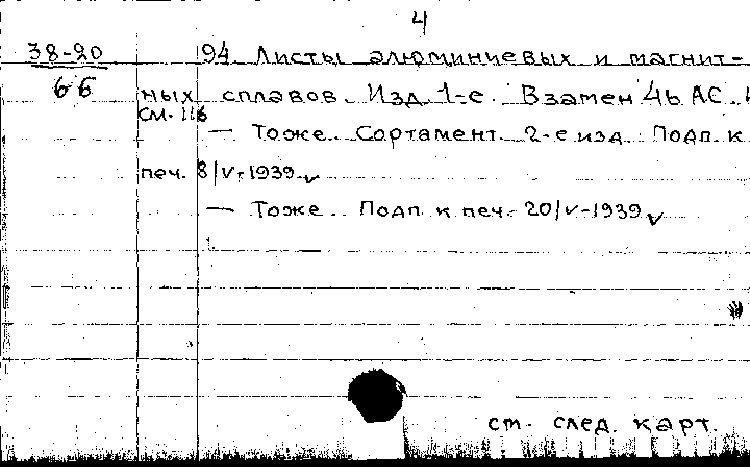 4
38-20 94. Листы алюминиевых и магнит-
66 ных сплавов. Изд. 1-е. Взамен 4ь АС.
см. 116
— Тоже. Сортамент. 2-е изд. Подп. к
печ. 8/V-1939 v
— Тоже. Подп. к печ. 20/V-1939 v
см. след. карт.